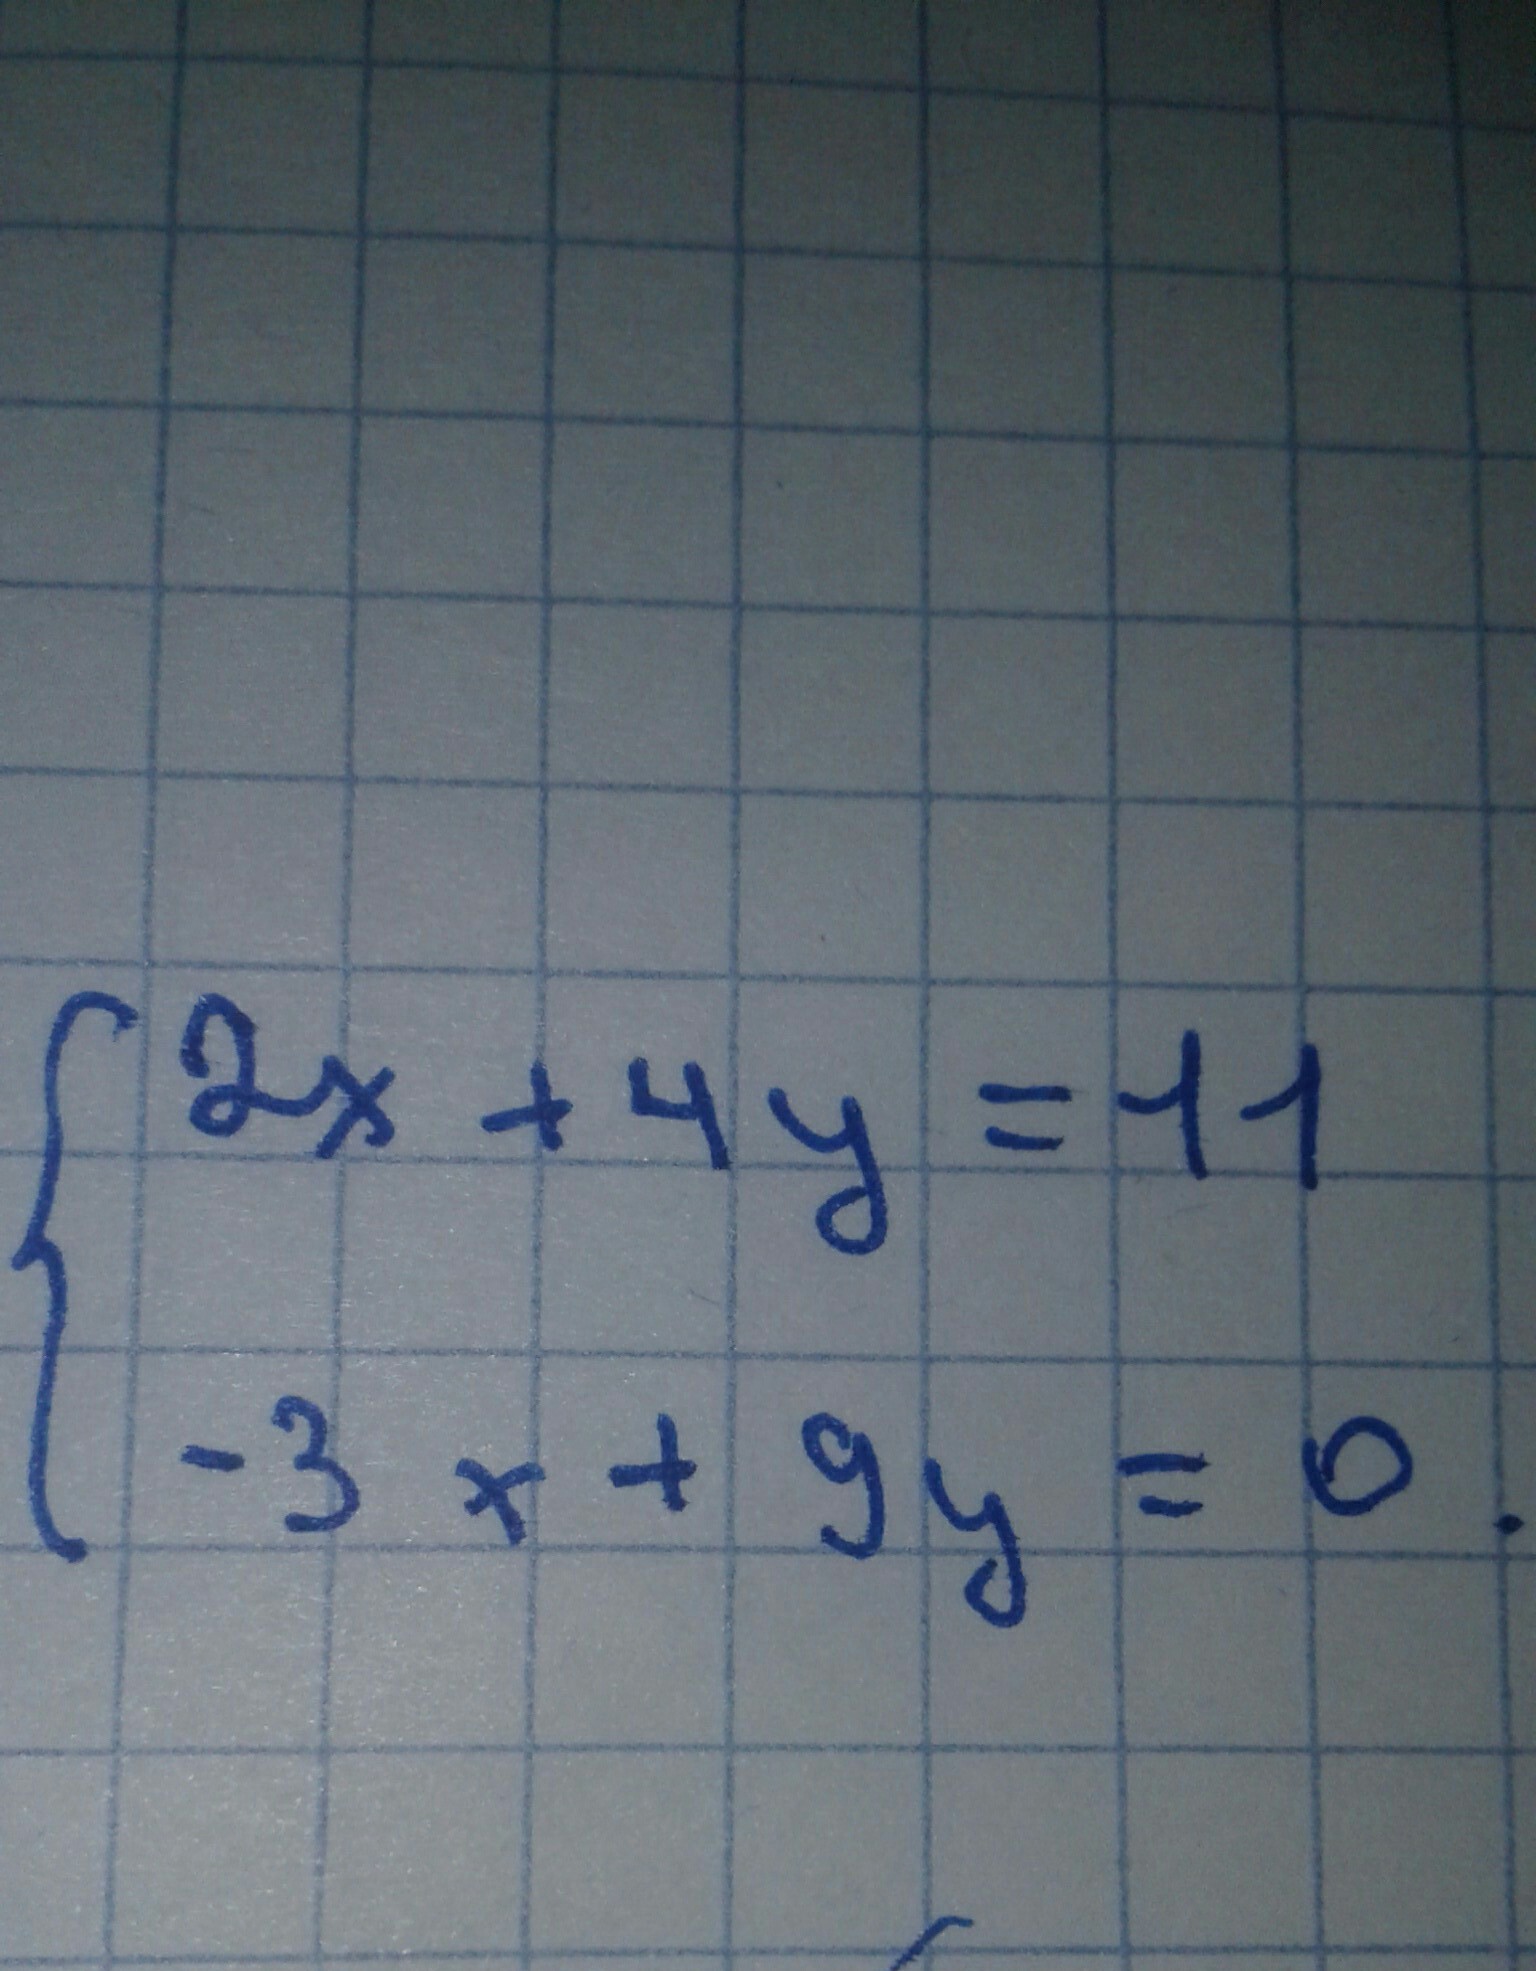 2x + 4y = 11
-3x + 9y = 0.